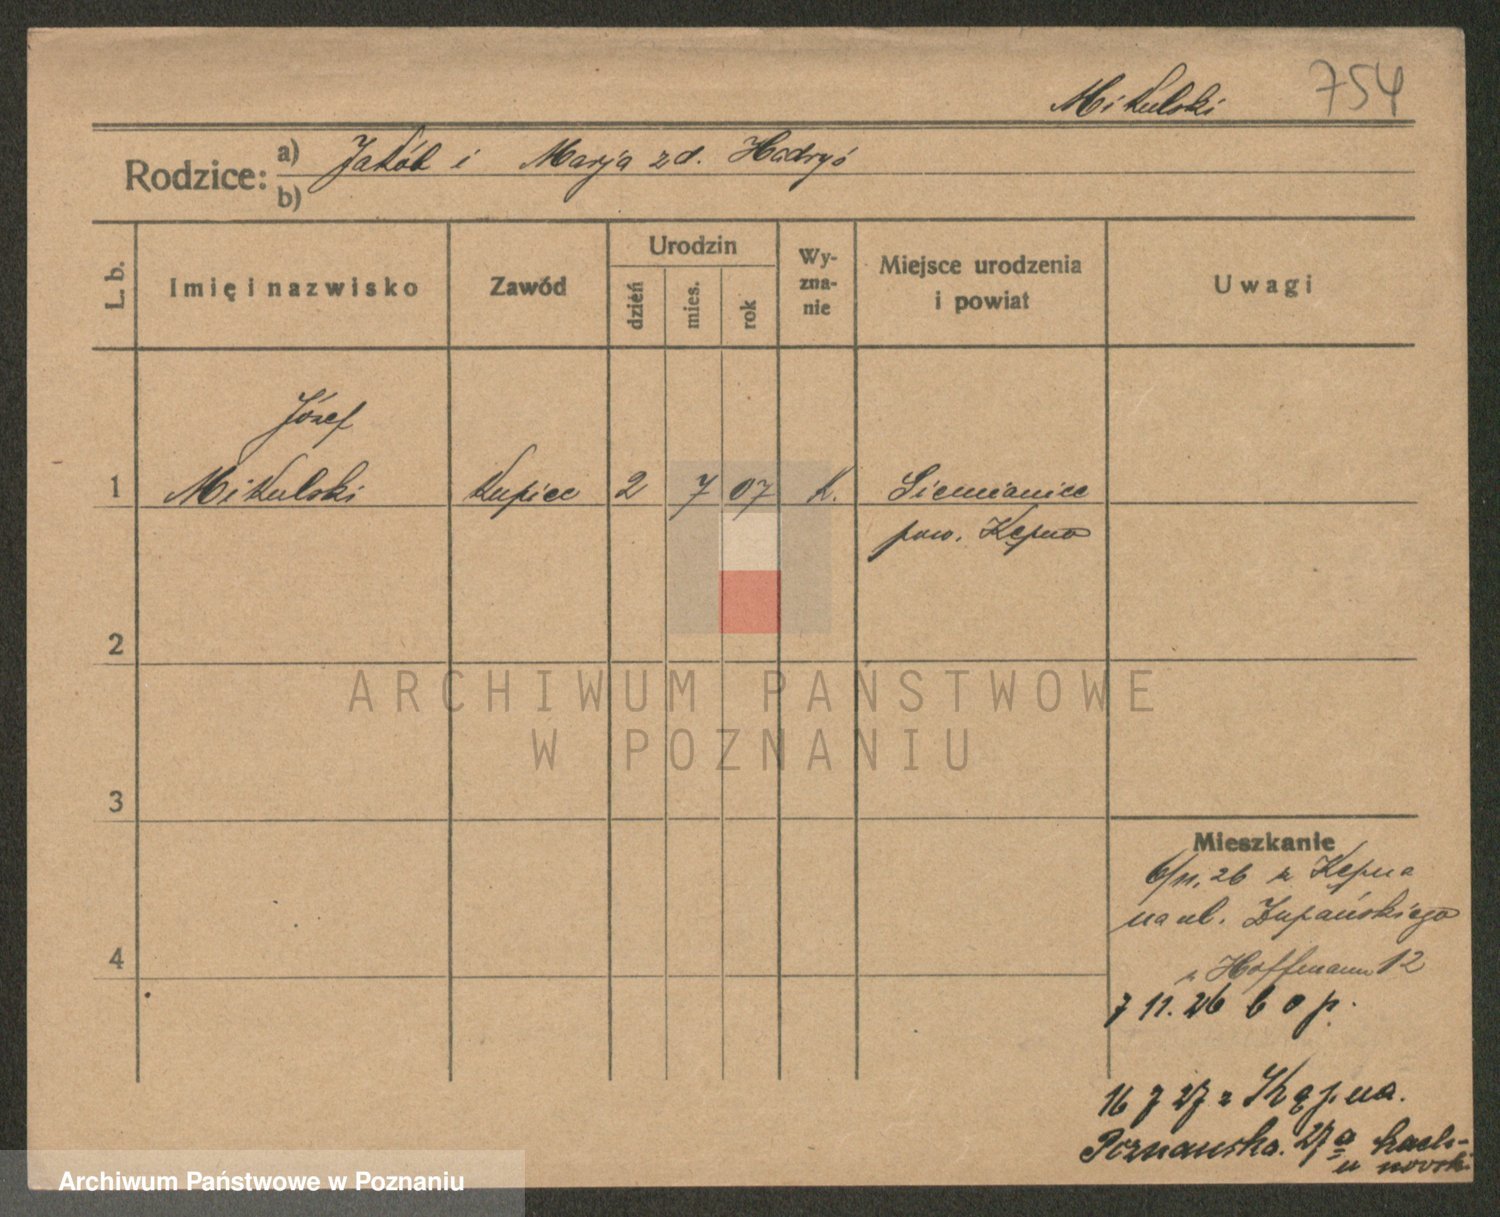 Mikulski 754
Rodzice: a) Jakób i Marja zd. Hadryś
b)
L. b. Imię i nazwisko Zawód Urodzin dzień mies. rok Wyznanie Miejsce urodzenia i powiat Uwagi
Józef
1 Mikulski kupiec 2 7 07 k. Siemianice
pow. Kępno
2
3
4
Mieszkanie
6/11.26 z Kępna
na ul. Żupańskiego
u Hoffmann 12
7 11.26 b o p.
16 7 27 z Kępna.
Poznańska. 27 a
u
ARCHIWUM PAŃSTWOWE
W POZNANIU
Archiwum Państwowe w Poznaniu